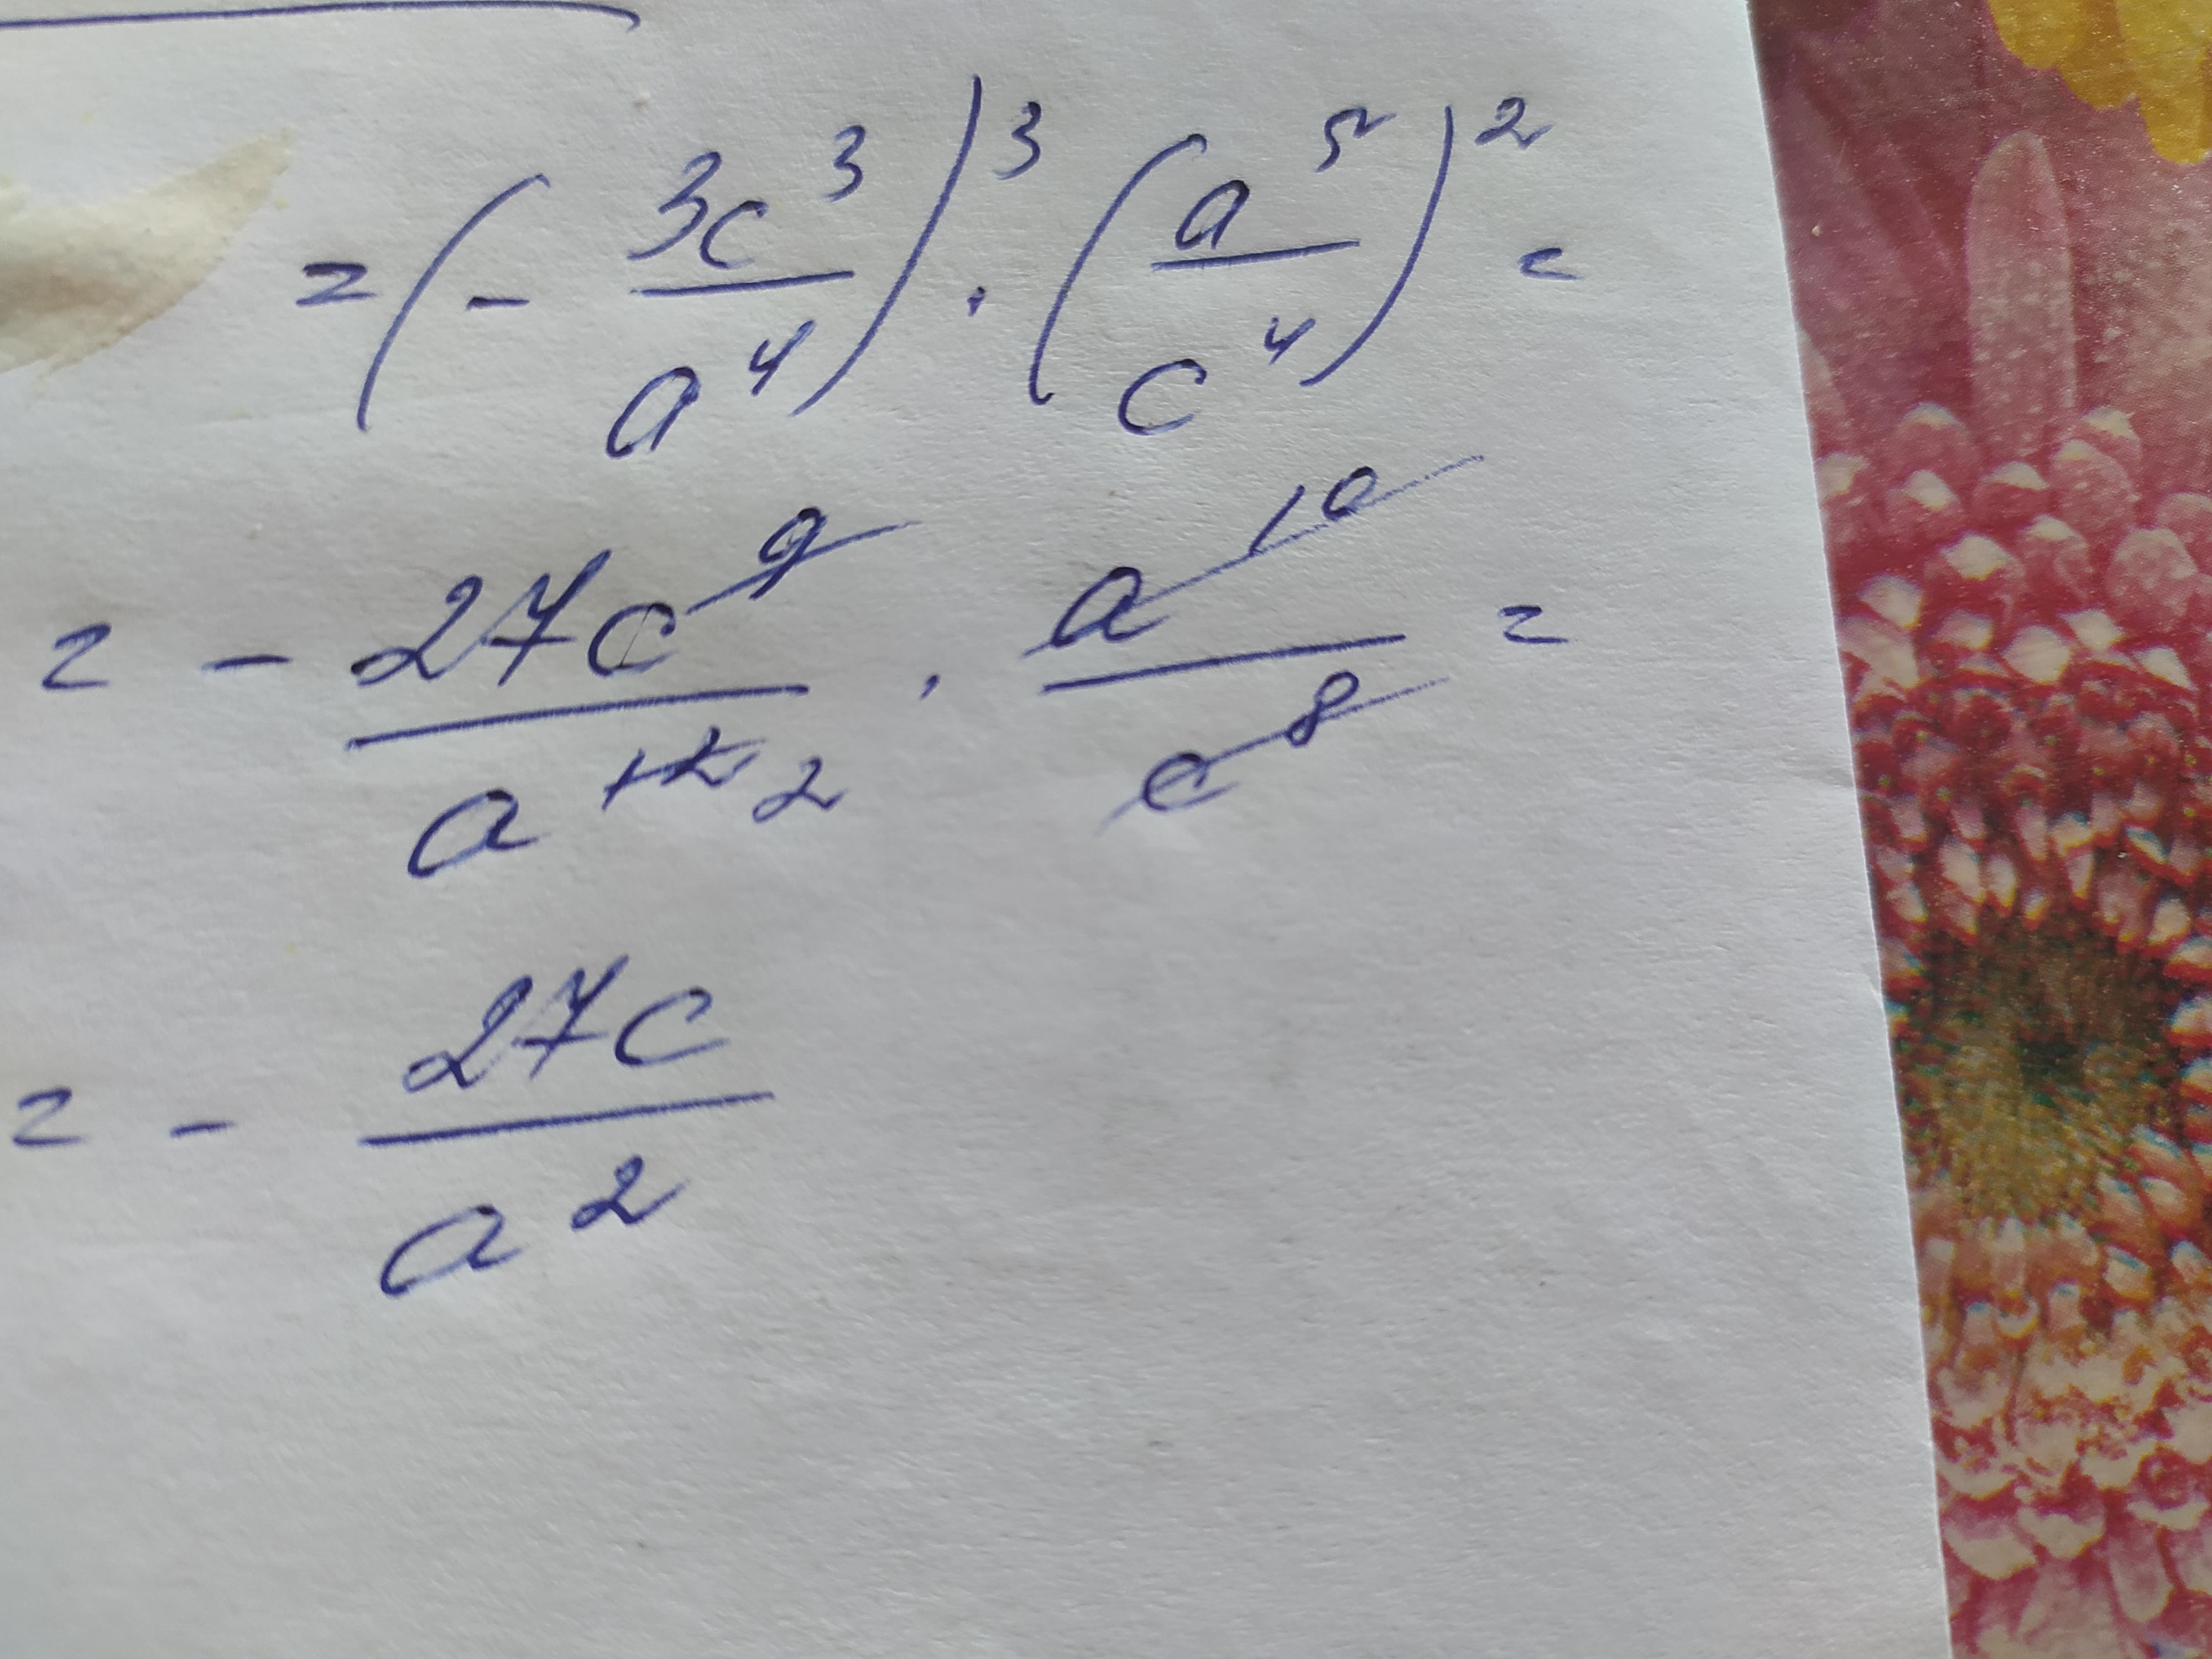 = (- 3c³/a⁴)³ · (a⁵/c⁴)² =
= - 27c⁹/a¹² 2 · a¹⁰/c⁸ =
= - 27c/a²